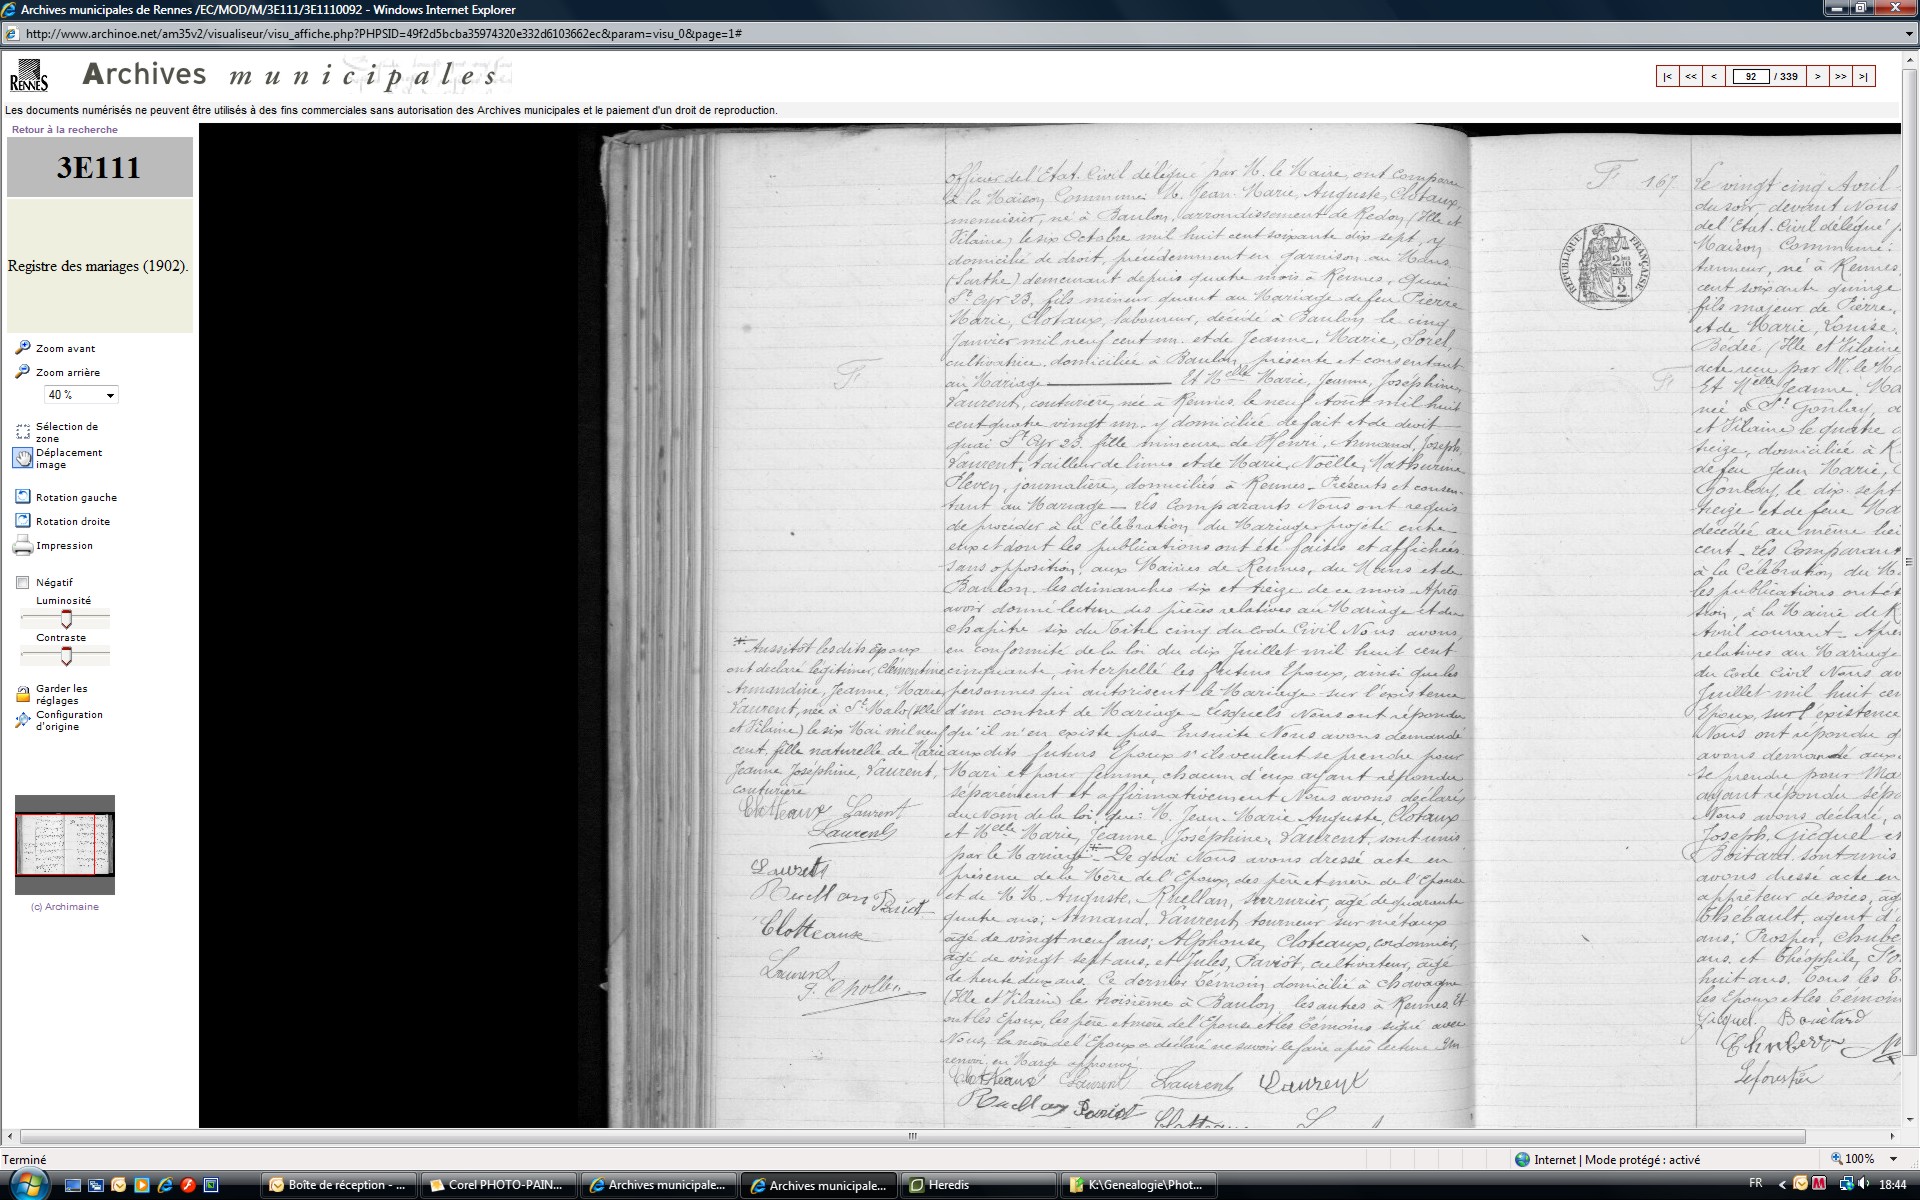 Archives municipales de Rennes /EC/MOD/M/3E111/3E1110092 - Windows Internet Explorer
http://www.archinoe.net/am35v2/visualiseur/visu_affiche.php?PHPSID=49f2d5bcba35974320e332d6103662ec&param=visu_0&page=1#
RENNES
Archives municipales
|< << < 92 / 339 > >> >|
Les documents numérisés ne peuvent être utilisés à des fins commerciales sans autorisation des Archives municipales et le paiement d'un droit de reproduction.
Retour à la recherche
3E111
Registre des mariages (1902).
Zoom avant
Zoom arrière
40 %
Sélection de
zone
Déplacement
image
Rotation gauche
Rotation droite
Impression
Négatif
Luminosité
Contraste
Garder les
réglages
Configuration
d'origine
(c) Archimaine
officier de l'Etat Civil délégué par M. le Maire, ont comparu
à la Maison Commune M. Jean Marie, Auguste, Clotaux,
menuisier, né à Baulon, arrondissement de Redon (Ille et
Vilaine) le six Octobre mil huit cent soixante dix sept, y
domicilié de droit, précédemment en garnison au Mans
(Sarthe) demeurant depuis quatre mois à Rennes, Quai
St Cyr 23, fils mineur quant au Mariage de feu Pierre
Marie, Clotaux, laboureur, décédé à Baulon le cinq
Janvier mil neuf cent un et de Jeanne, Marie, Sorel,
cultivatrice, domiciliée à Baulon, présente et consentant
au Mariage Et Melle Marie, Jeanne, Joséphine,
Laurent, couturière, née à Rennes le neuf Août mil huit
cent quatre vingt un, y domiciliée de fait et de droit
quai St Cyr 23, fille mineure de Henri, Armand, Joseph,
Laurent, tailleur de limes et de Marie, Noëlle, Mathurine
Pleven, journalière, domiciliés à Rennes - Présents et consen-
tant au Mariage - Les Comparants Nous ont requis
de procéder à la célébration du Mariage projeté entre
eux et dont les publications ont été faites et affichées
sans opposition, aux Mairies de Rennes, du Mans et de
Baulon les dimanches six et treize de ce mois Après
avoir donné lecture des pièces relatives au Mariage et du
chapitre six du Titre cinq du Code Civil Nous avons,
en conformité de la loi du dix Juillet mil huit cent
cinquante, interpellé les futurs Epoux, ainsi que les
personnes qui autorisent le Mariage sur l'existence
d'un contrat de Mariage - Lesquels Nous ont répondu
qu'il n'en existe pas Ensuite Nous avons demandé
aux dits futurs Epoux s'ils veulent se prendre pour
Mari et pour femme, chacun d'eux ayant répondu
séparément et affirmativement Nous avons déclaré
au Nom de la loi, que: M. Jean Marie Auguste, Clotaux
et Melle Marie, Jeanne, Joséphine, Laurent, sont unis
par le Mariage - De quoi Nous avons dressé acte en
présence de la Mère de l'Epoux, des père et mère de l'Epouse
et de M.M. Auguste, Ruellan, serrurier, agé de quarante
quatre ans; Armand, Laurent, tourneur sur métaux
agé de vingt neuf ans; Alphonse, Cloteaux, cordonnier,
agé de vingt sept ans, et Jules, Pariot, cultivateur, agé
de trente deux ans. Ce dernier Témoin domicilié à Chavagne
(Ille et Vilaine) le troisième à Baulon, les autres à Rennes Et
ont les Epoux, les père et mère de l'Epouse et les Témoins signé avec
Nous, la mère de l'Epoux a déclaré ne savoir le faire après lecture Un
renvoi en Marge approuvé
Clotteaux Laurent Laurent Laurent
Ruellan Pariot Clotteaux
F
Aussitôt les dits Epoux
ont déclaré légitimer, Clémentine
Armandine, Jeanne, Marie
Laurent, née à St Malo (Ille
et Vilaine) le six Mai mil neuf
cent, fille naturelle de Marie
Jeanne Joséphine, Laurent,
couturière
Clotteaux Laurent
Laurent
Laurent
Ruellan Pariot
Clotteaux
Laurent
F 167
REPUBLIQUE FRANÇAISE
Le vingt cinq Avril
du soir devant Nous
de l'Etat Civil délégué
Maison Commune:
tanneur, né à Rennes
cent soixante quinze
fils majeur de Pierre,
et de Marie, Louise,
Bédée (Ille et Vilaine
acte reçu par M. le
F
Et Melle Jeanne, Ma
née à St Gonlay,
et Vilaine) le quatre
treize, domiciliée à R
de feu Jean Marie,
Gonlay, le dix sept
treize et de feue Ma
décédée au même lieu
cent - Les Comparant
à la Célébration du M
les publications ont ét
à la Mairie de R
Avril courant - Aprè
relatives au Mariage
du Code Civil Nous av
Juillet mil huit cen
Epoux, sur l'existence
Nous ont répondu q
avons demandé aux
se prendre pour Ma
ayant répondu sépa
Nous avons déclaré,
Joseph, Gicquel et
Boitard, sont unis
avons dressé acte en
apprêteur de soies, ag
Thébault, agent d'
ans; Prosper,
ans, et Théophile,
huit ans. Tous les T
les Epoux et les Témoins
Gicquel Bouëtard
Leforestier
Terminé
Internet | Mode protégé : activé
100%
Boîte de réception - ...
Corel PHOTO-PAIN...
Archives municipale...
Archives municipale...
Heredis
K:\Genealogie\Phot...
FR
18:44